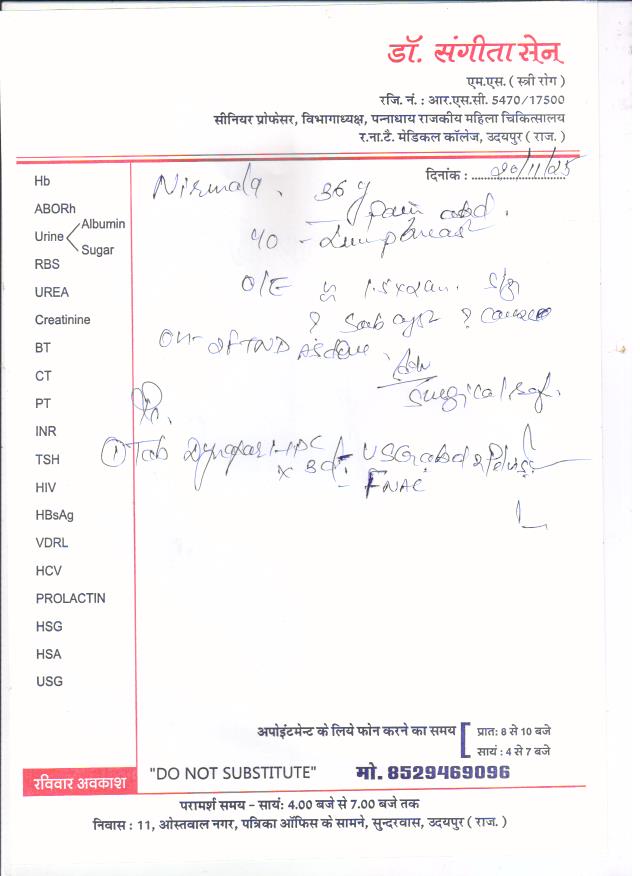 डॉ. संगीता सेन
एम.एस. ( स्त्री रोग )
रजि. नं. : आर.एस.सी. 5470/17500
सीनियर प्रोफेसर, विभागाध्यक्ष, पन्नाधाय राजकीय महिला चिकित्सालय
र.ना.टै. मेडिकल कॉलेज, उदयपुर ( राज. )
दिनांक : 20/11/25
Hb
ABORh
Urine Albumin
Sugar
RBS
UREA
Creatinine
BT
CT
PT
INR
TSH
HIV
HBsAg
VDRL
HCV
PROLACTIN
HSG
HSA
USG
Nirmala. 36 y
pain abd.
C/O - Lump breast
O/E 1.5 x 2 cm.
? Seb cyst ?
Adv
Surgical ref.
Rx.
① Tab
x BD - USG abd & Pelvis
- FNAC
अपोइंटमेन्ट के लिये फोन करने का समय
प्रात: 8 से 10 बजे
सायं : 4 से 7 बजे
रविवार अवकाश
"DO NOT SUBSTITUTE" मो. 8529469096
परामर्श समय - सायं: 4.00 बजे से 7.00 बजे तक
निवास : 11, ओस्तवाल नगर, पत्रिका ऑफिस के सामने, सुन्दरवास, उदयपुर ( राज. )